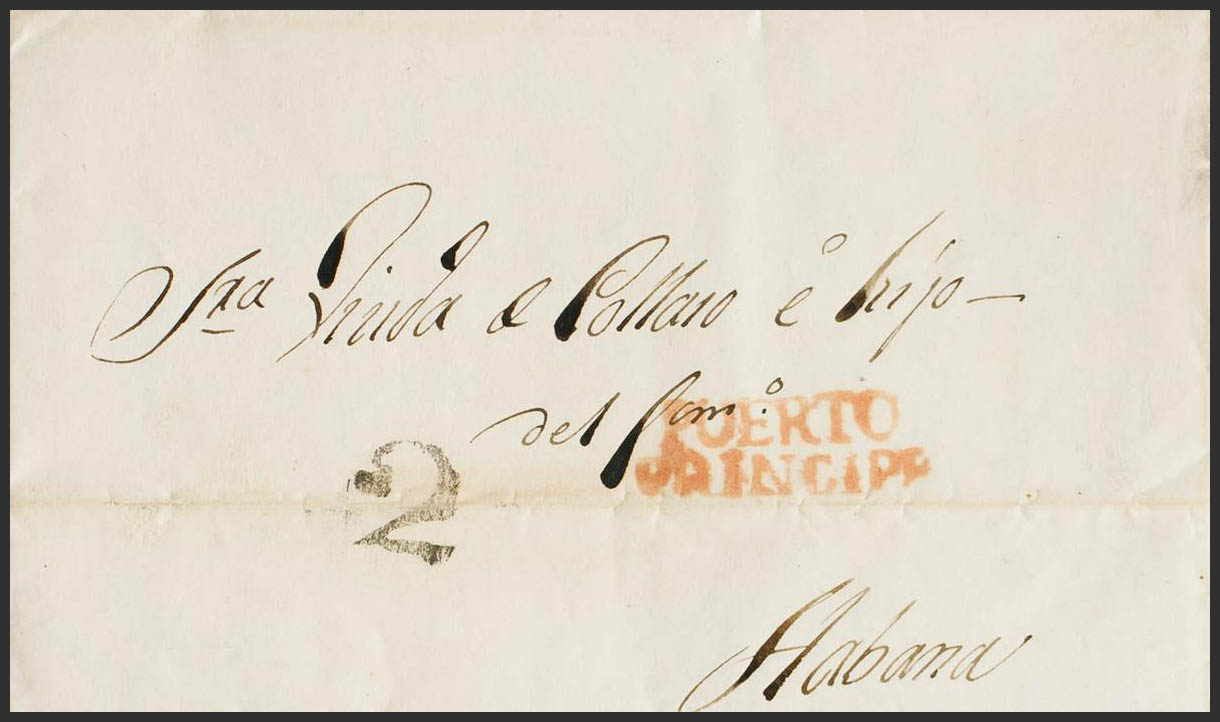 Sra Viuda de Collazo é hijo
del Comº.
PUERTO
PRINCIPE
2
Habana